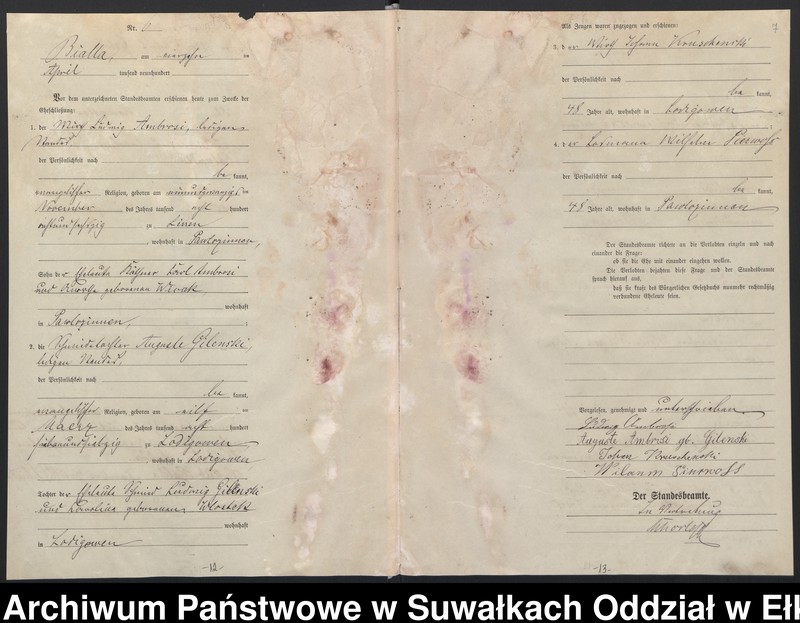 Nr. 6
Bialla, am vierzehn ten
April tausend neunhundert
Vor dem unterzeichneten Standesbeamten erschienen heute zum Zwecke der
Eheschließung:
1. der Wirt Ludwig Ambrosi, ledigen
Standes,
der Persönlichkeit nach
be kannt,
evangelischer Religion, geboren am neunundzwanzigsten
November des Jahres tausend acht hundert
zu
, wohnhaft in Pawlozinnen,
Sohn der Eheleute Käthner Karl Ambrosi
und geborenen
wohnhaft
in Pawlozinnen,
2. die Schmiedetochter Auguste Gilenski,
ledigen Standes,
der Persönlichkeit nach
be kannt,
evangelischer Religion, geboren am elf ten
Maerz des Jahres tausend acht hundert
siebenundsiebzig zu Lodigowen
, wohnhaft in Lodigowen
Tochter der Eheleute Schmied Ludwig Gilenski
und Karoline geborenen
wohnhaft
in Lodigowen
-12-
7
Als Zeugen waren zugezogen und erschienen:
3. der Wirth Johann Kruschewski
der Persönlichkeit nach
be kannt,
48 Jahre alt, wohnhaft in Lodigowen
4. der Losmann Wilhelm
der Persönlichkeit nach
be kannt,
48 Jahre alt, wohnhaft in Pawlozinnen
Der Standesbeamte richtete an die Verlobten einzeln und nach
einander die Frage:
ob sie die Ehe mit einander eingehen wollen.
Die Verlobten bejahten diese Frage und der Standesbeamte
sprach hierauf aus,
daß sie kraft des Bürgerlichen Gesetzbuchs nunmehr rechtmäßig
verbundene Eheleute seien.
Vorgelesen, genehmigt und unterschrieben
Ludwig Ambrosi
Auguste Ambrosi gb. Gilenski
Johann Kruschewski
Der Standesbeamte.
In Vertretung
-13-
Archiwum Państwowe w Suwałkach Oddział w Ełk